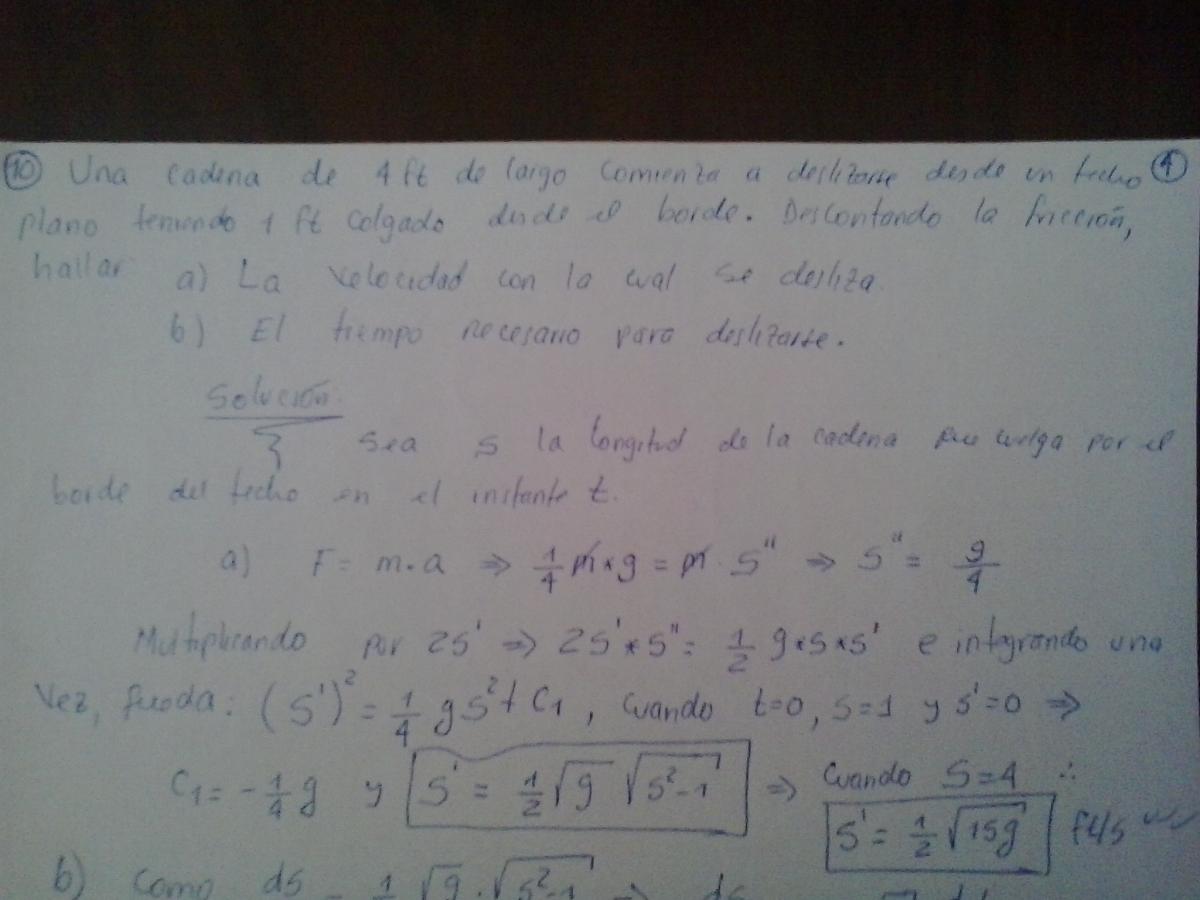 10 Una cadena de 4 ft de largo comienza a deslizarse desde un techo 1
plano teniendo 1 ft colgado desde el borde. Descontando la fricción,
hallar a) La velocidad con la cual se desliza.
b) El tiempo necesario para deslizarse.
Solución:
Sea s la longitud de la cadena que cuelga por el
borde del techo en el instante t.
a) F = m.a ⇒ 1/4 m*g = m.s'' ⇒ s'' = g/4
Multiplicando por 2s' ⇒ 2s'*s'' = 1/2 g*s*s' e integrando una
vez, queda: (s')² = 1/4 gs² + C1, cuando t=0, s=1 y s'=0 ⇒
C1 = -1/4 g y s' = 1/2 √g √s²-1 ⇒ Cuando s=4 ∴
s' = 1/2 √15g ft/s
b) Como ds = 1/2 √g . √s²-1 ⇒ ds